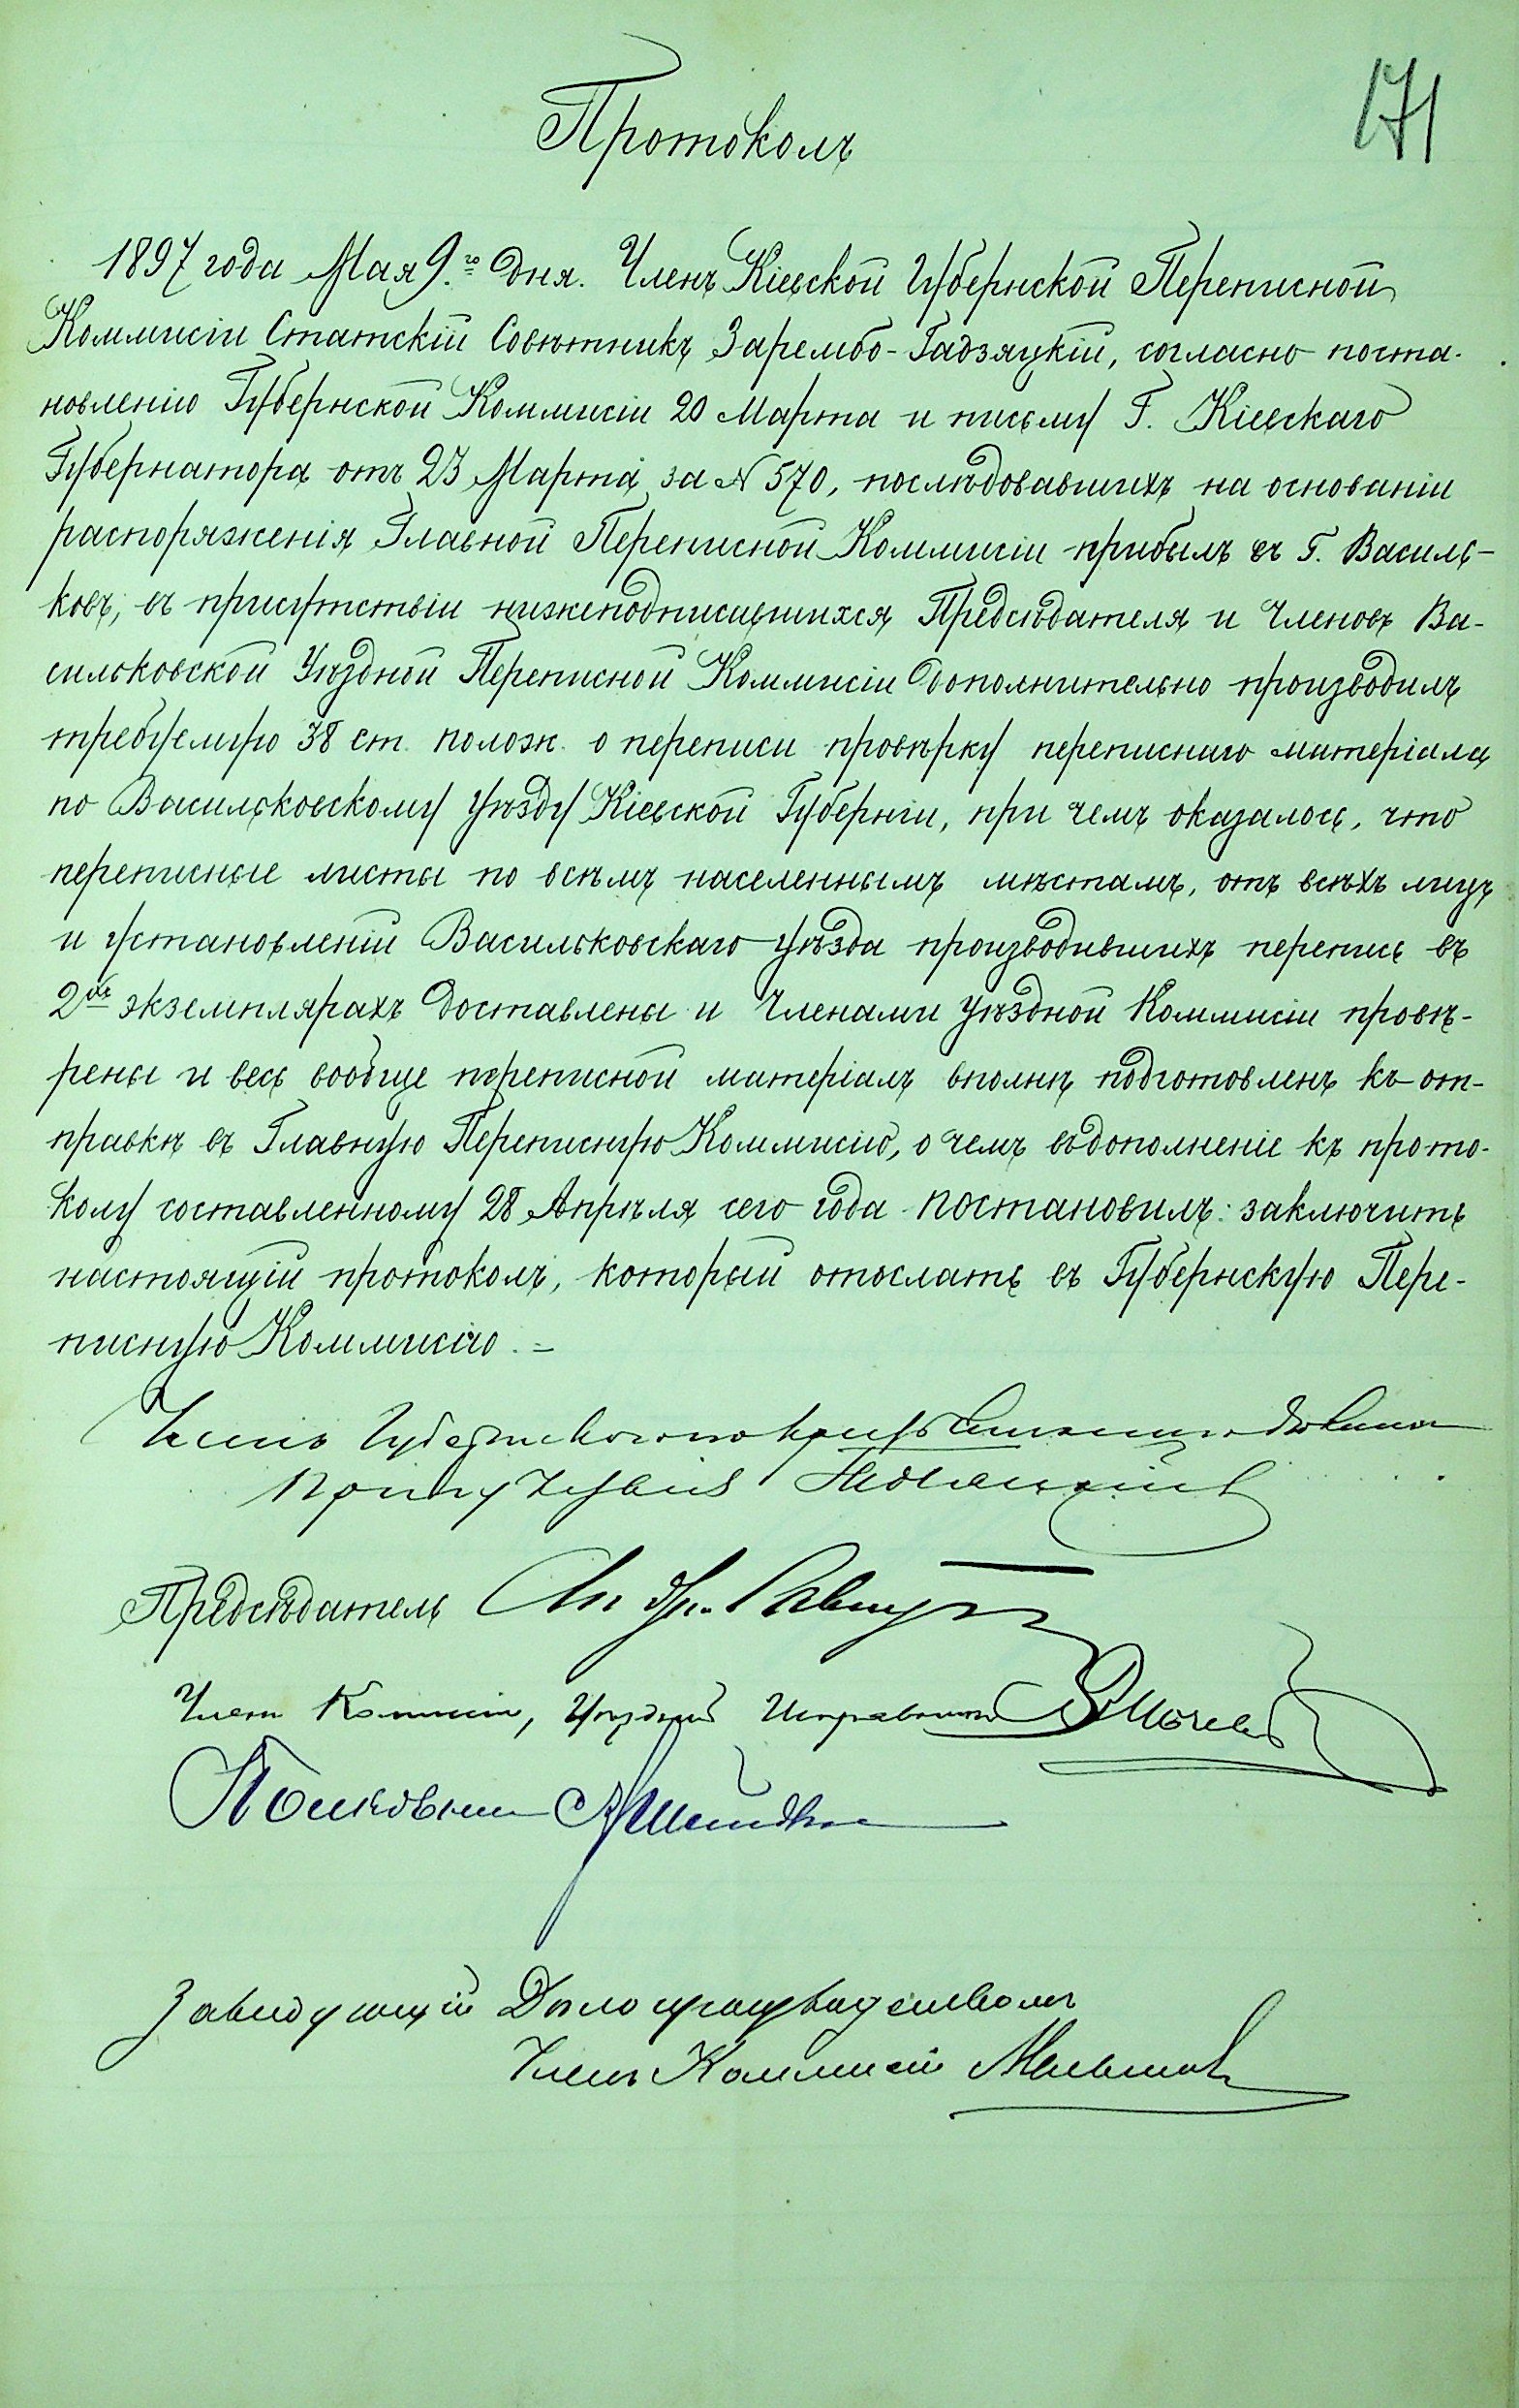 171
Протоколъ
1897 года Мая 9.го дня. Членъ Кіевской Губернской Переписной
Коммисіи Статскій Совѣтникъ Зарембо-Гадзяцкій, согласно поста-
новленію Губернской Коммисіи 20 Марта и письму Г. Кіевскаго
Губернатора отъ 23 Марта за № 570, послѣдовавшихъ на основаніи
распоряженія Главной Переписной Коммисіи прибылъ въ г. Василь-
ковъ, въ присутствіи нижеподписавшихся Предсѣдателя и Членовъ Ва-
сильковской Уѣздной Переписной Коммисіи дополнительно производилъ
требуемую 38 ст. полож. о переписи провѣрку переписнаго матеріала
по Васильковскому уѣзду Кіевской Губерніи, при чемъ оказалось, что
переписные листы по всѣмъ населеннымъ мѣстамъ, отъ всѣхъ лицъ
и установленій Васильковскаго уѣзда производившихъ перепись въ
2хъ экземплярахъ доставлены и Членами уѣздной Коммисіи провѣ-
рены и весь вообще переписной матеріалъ вполнѣ подготовленъ къ от-
правкѣ въ Главную Переписную Коммисію, о чемъ въ дополненіе къ прото-
колу составленному 28 Апрѣля сего года постановилъ: заключить
настоящій протоколъ, который отослать въ Губернскую Пере-
писную Коммисію.=
Членъ Губернскаго по
Присутствія
Предсѣдатель
Членъ Коммисіи, Уѣздный Исправникъ
Полковникъ
Завѣдующій Дѣлопроизводствомъ
Членъ Коммисіи